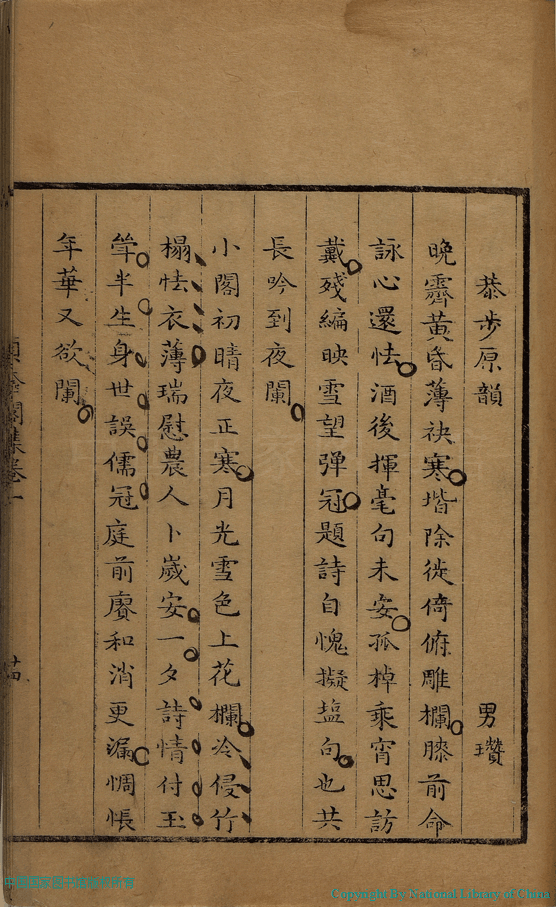 恭步原韻 男瓚
晚霽黃昏薄袂寒堦除徙倚俯雕欄膝前命
詠心還怯酒後揮毫句未安孤棹乘宵思訪
戴殘編映雪望彈冠題詩自愧擬塩句也共
長吟到夜闌
小閣初晴夜正寒月光雪色上花欄冷侵竹
榻怯衣薄瑞慰農人卜歲安一夕詩情付玉
聳半生身世誤儒冠庭前賡和消更漏惆悵
年華又欲闌
閣集卷一
Copyright By National Library of China